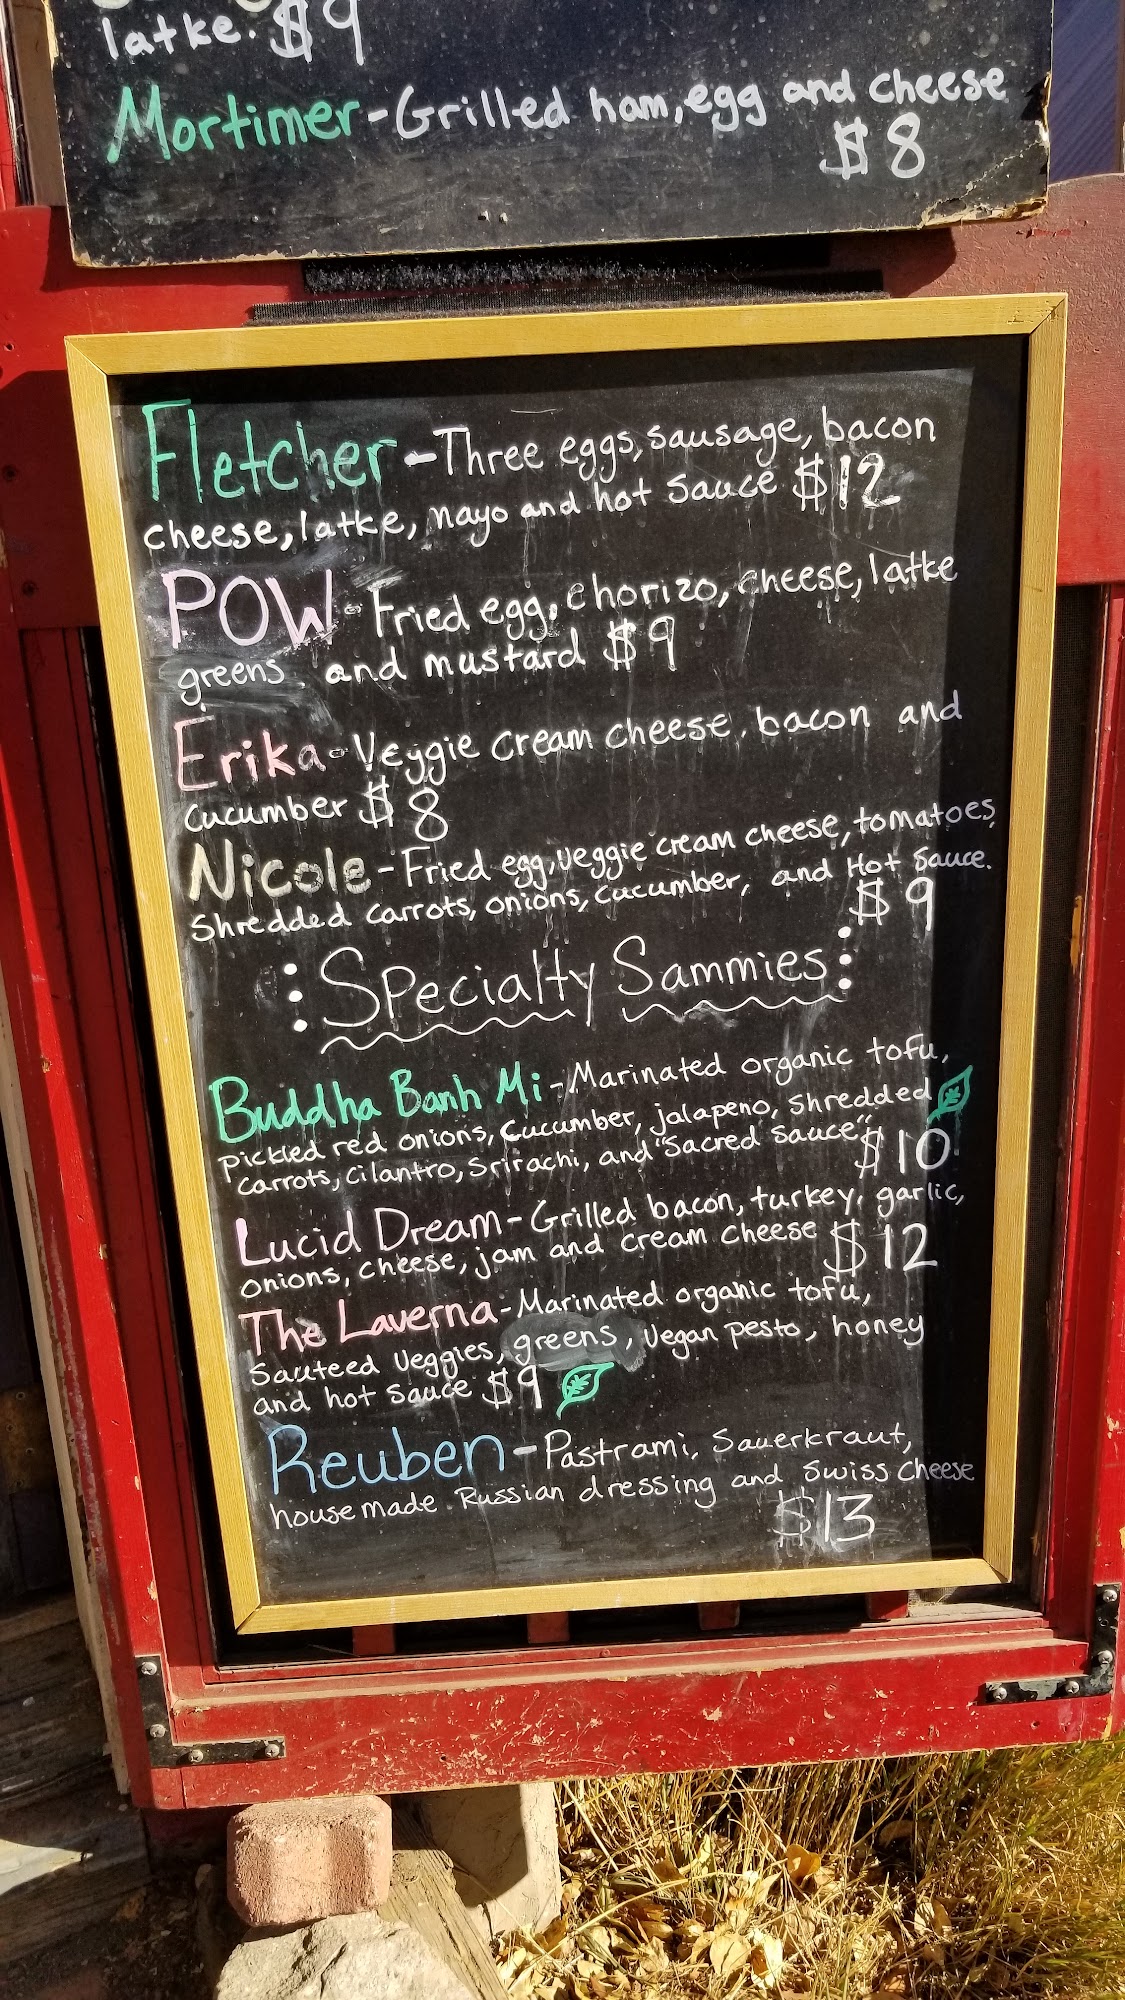 latke. $9
Mortimer - Grilled ham, egg and cheese
$8
Fletcher - Three eggs, sausage, bacon
cheese, latke, mayo and hot sauce $12
POW - Fried egg, chorizo, cheese, latke
greens and mustard $9
Erika - Veggie cream cheese, bacon and
cucumber $8
Nicole - Fried egg, veggie cream cheese, tomatoes,
Shredded carrots, onions, cucumber, and Hot Sauce.
$9
Specialty Sammies
Buddha Banh Mi - Marinated organic tofu,
pickled red onions, cucumber, jalapeno, shredded
carrots, cilantro, Srirachi, and "Sacred Sauce" $10
Lucid Dream - Grilled bacon, turkey, garlic,
onions, cheese, jam and cream cheese $12
The Laverna - Marinated organic tofu,
Sauteed veggies, greens, vegan pesto, honey
and hot sauce $9
Reuben - Pastrami, Sauerkraut,
house made Russian dressing and Swiss cheese
$13